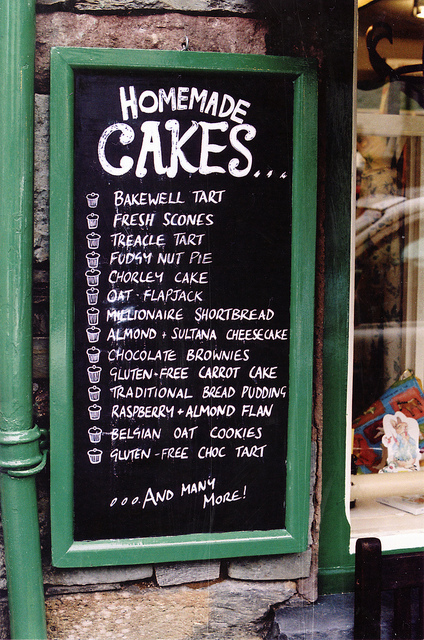 HOMEMADE
CAKES...
BAKEWELL TART
FRESH SCONES
TREACLE TART
FUDGY NUT PIE
CHORLEY CAKE
OAT - FLAPJACK
MILLIONAIRE SHORTBREAD
ALMOND + SULTANA CHEESECAKE
CHOCOLATE BROWNIES
GLUTEN-FREE CARROT CAKE
TRADITIONAL BREAD PUDDING
RASPBERRY + ALMOND FLAN
BELGIAN OAT COOKIES
GLUTEN-FREE CHOC TART
...AND MANY
MORE!